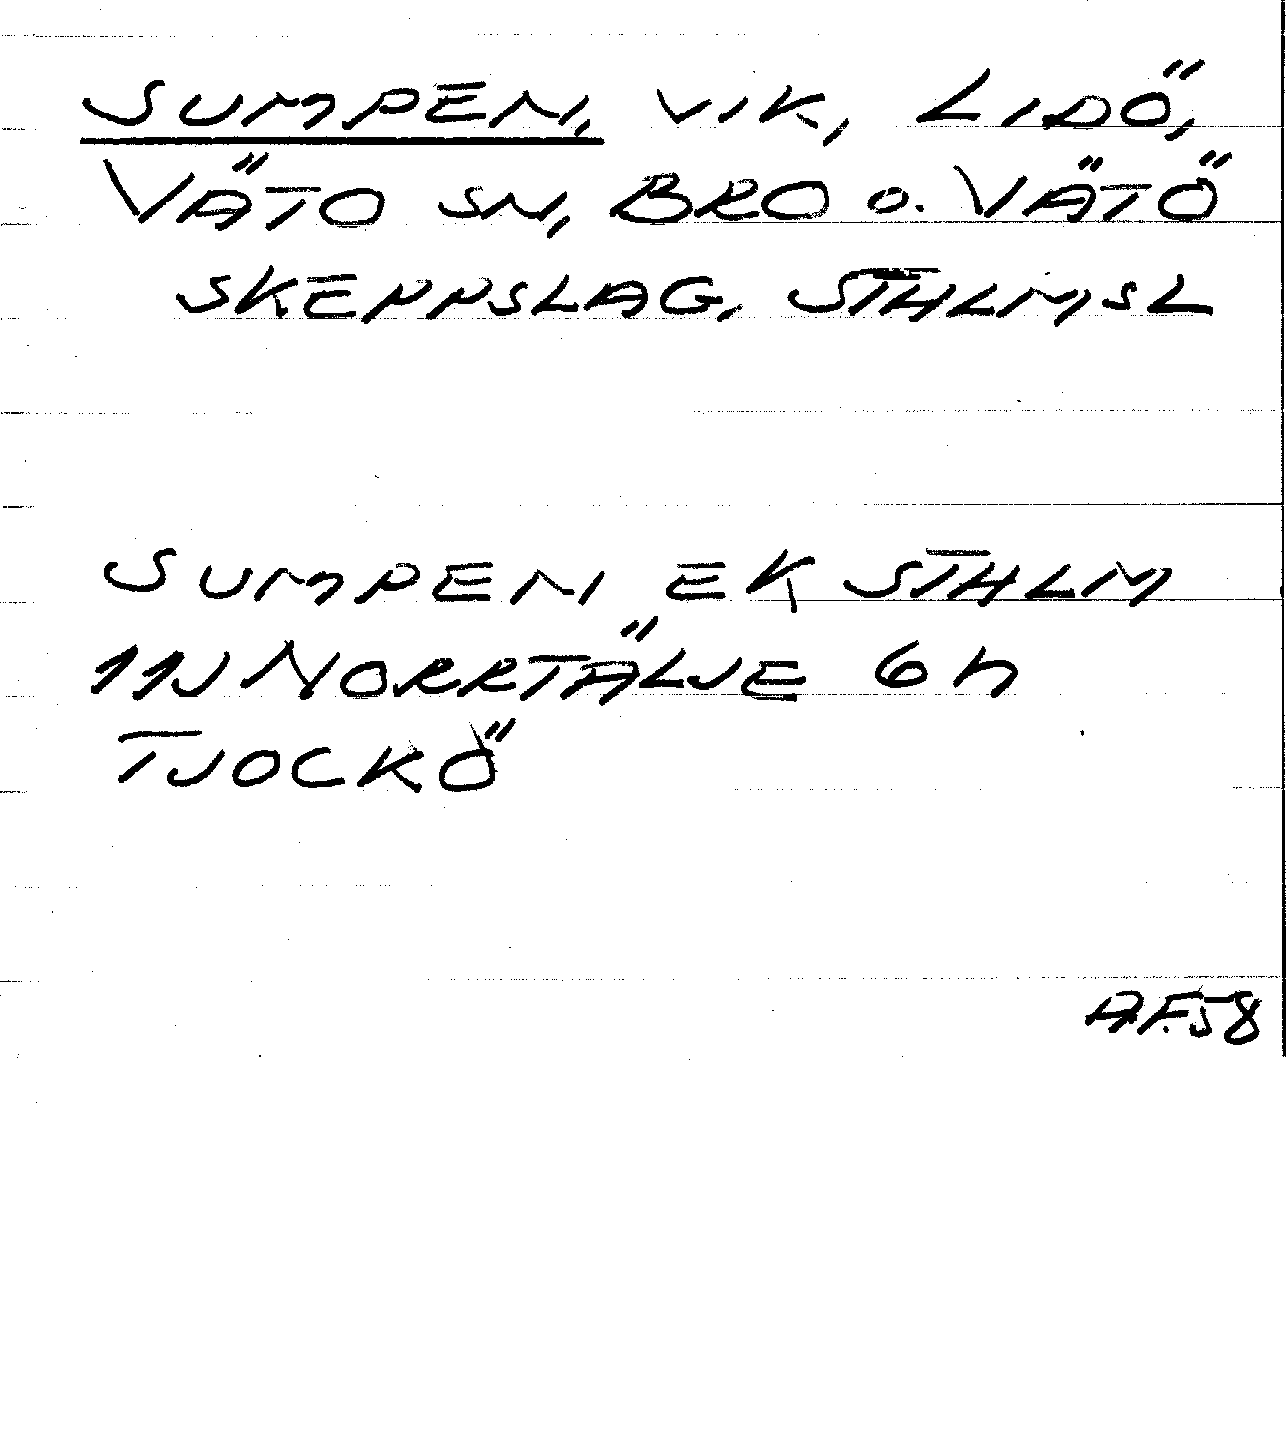 SUMPEN, VIK, LIDÖ,
VÄTO SN, BRO o. VÄTÖ
SKEPPSLAG, STHLMSL
SUMPEN EK STHLM
11J NORRTÄLJE 6 h
TJOCKÖ
A.F.58